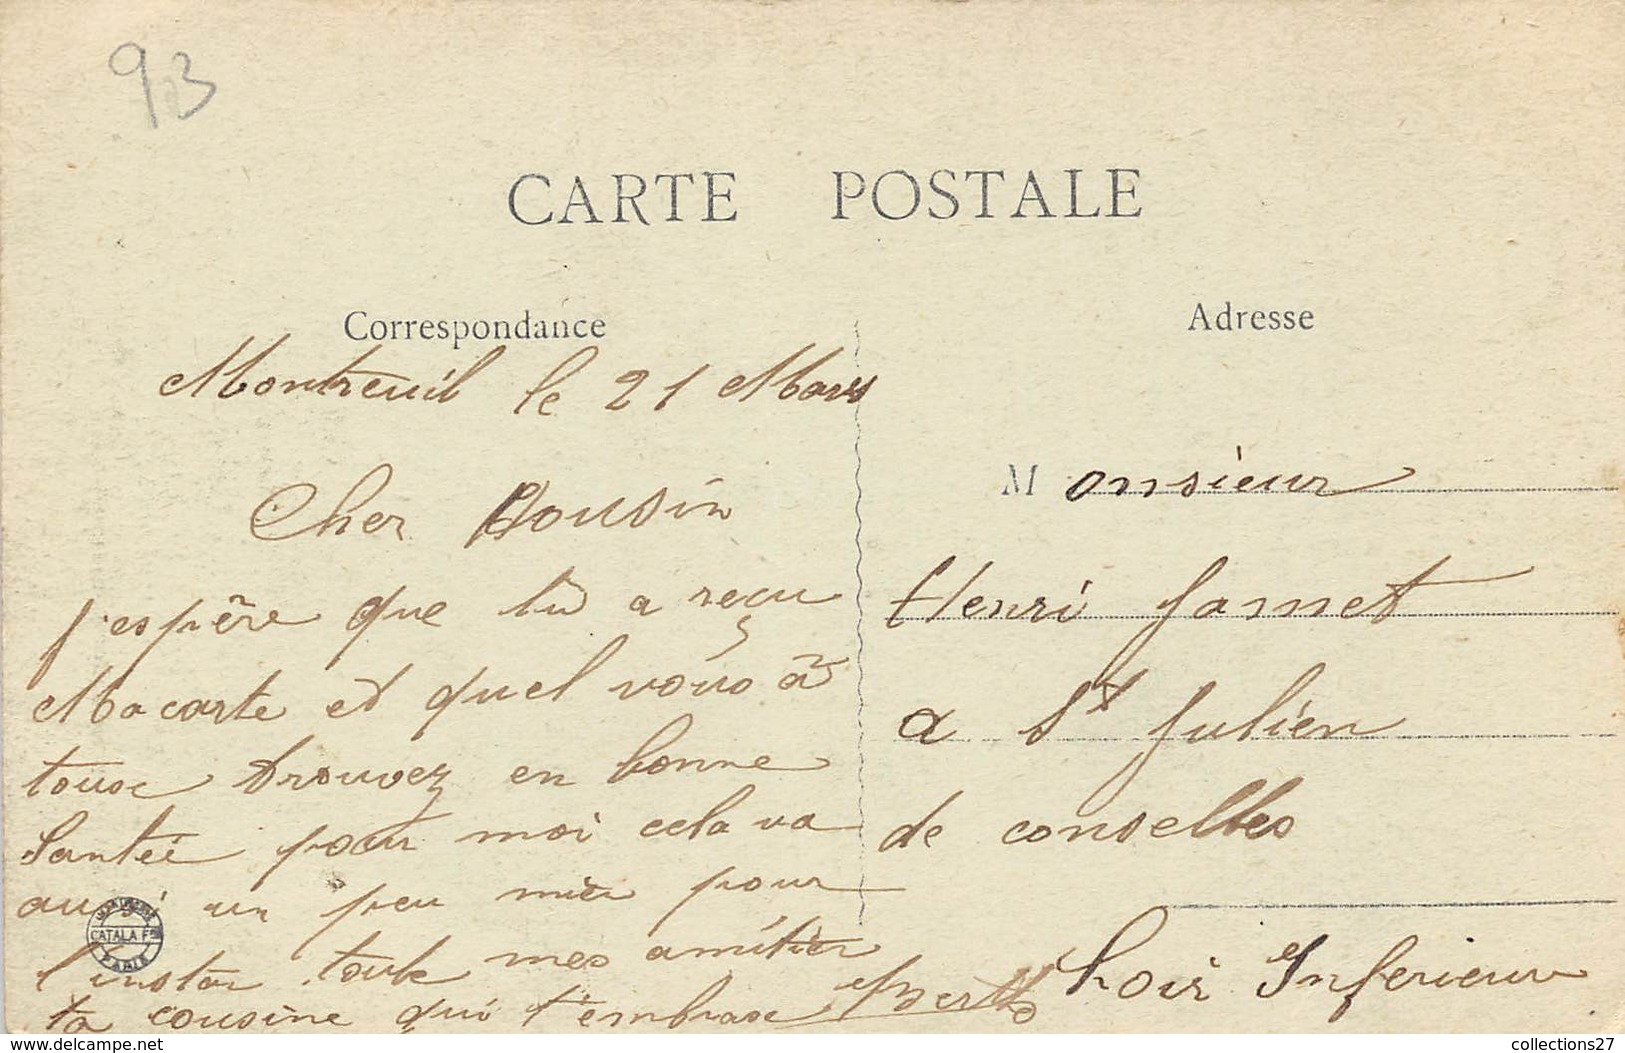 93
CARTE POSTALE
Correspondance
Montreuil le 21 Mars
Cher Cousin
j'espère que tu a reçu
Ma carte et quel vous à
touse trouvez en bonne
Santéé pour moi cela va
aussi un peu mieu pour
l'instan toute mes amitier
ta cousine qui t'embrase Berthe
Adresse
Monsieur
Henri Jamet
a St Julien
de conselles
Loir Inferieur
IMPRIMERIE
CATALA FRES
PARIS
www.delcampe.net
collections27